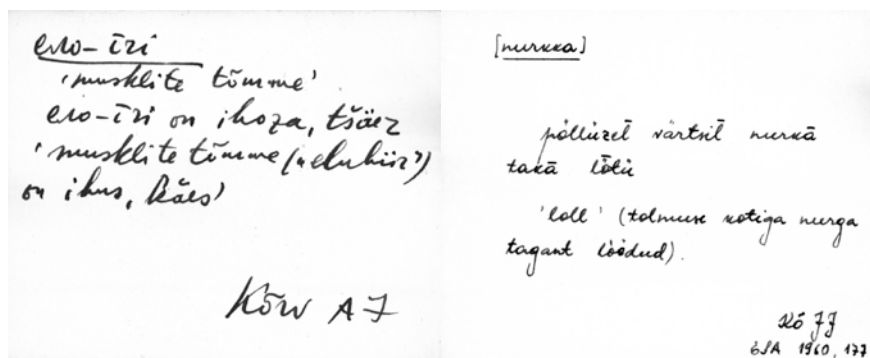 elo-īri
'musklite tõmme'
elo-īri on ihoza, tšäez
'musklite tõmme („eluhiir”)
on ihus, käes'
Kõrv AJ
[nurkka]
põllüzēl värtsil nurkā
takā lȫtü
'loll' (tolmuse kotiga nurga
tagant löödud).
Kõ JJ
ESA 1960, 177